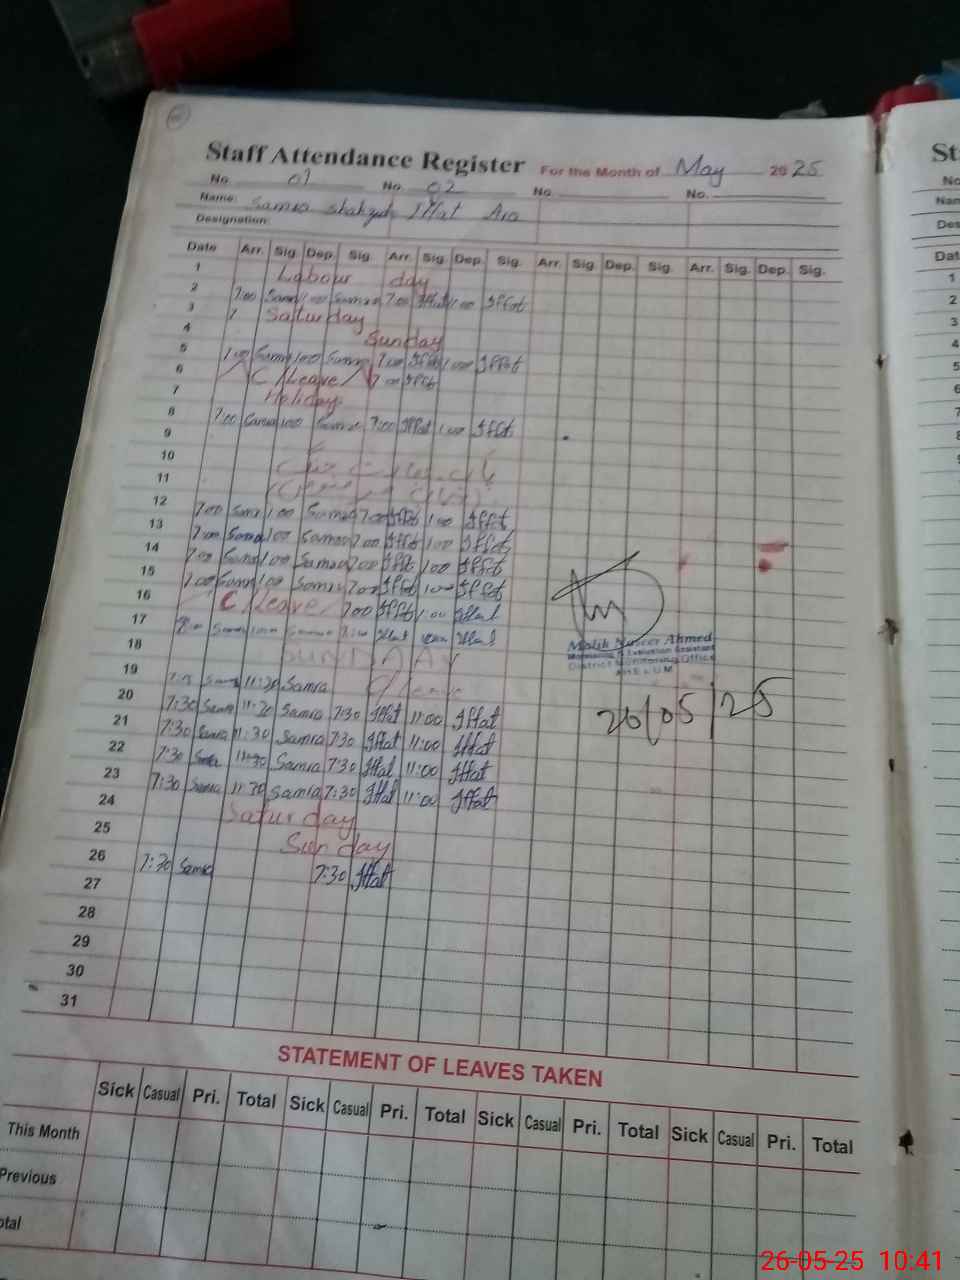 Staff Attendance Register For the Month of May 2025
No. 01 No. 02 No. No.
Name: Samra Shahzadi Iffat Ara
Designation:
Date Arr. Sig. Dep. Sig. Arr. Sig. Dep. Sig. Arr. Sig. Dep. Sig. Arr. Sig. Dep. Sig.
1 Labour day
2 7:00 Samra 1:00 Samra 7:00 Iffat 1:00 Iffat
3 Saturday
4 Sunday
5 7:00 Samra 1:00 Samra 7:00 Iffat 1:00 Iffat
6 C/Leave 7:00 Iffat
7 Holiday
8 7:00 Samra 1:00 Samra 7:00 Iffat 1:00 Iffat
9
10
11
12 7:00 Samra 1:00 Samra 7:00 Iffat 1:00 Iffat
13 7:00 Samra 1:00 Samra 7:00 Iffat 1:00 Iffat
14 7:00 Samra 1:00 Samra 7:00 Iffat 1:00 Iffat
15 7:00 Samra 1:00 Samra 7:00 Iffat 1:00 Iffat
16 C/Leave 7:00 Iffat 1:00 Iffat
17 Samra Samra Iffat Iffat
18 SUNDAY
19 Samra 11:30 Samra C/leave
20 7:30 Samra 11:30 Samra 7:30 Iffat 11:00 Iffat
21 7:30 Samra 11:30 Samra 7:30 Iffat 11:00 Iffat
22 7:30 Samra 11:30 Samra 7:30 Iffat 11:00 Iffat
23 7:30 Samra 11:30 Samra 7:30 Iffat 11:00 Iffat
24 Saturday
25 Sunday
26 7:30 Samra 7:30 Iffat
27
28
29
30
31
Malik Naseer Ahmed
Monitoring & Evaluation Assistant
District Monitoring Office
JHELUM
26/05/25
STATEMENT OF LEAVES TAKEN
Sick Casual Pri. Total Sick Casual Pri. Total Sick Casual Pri. Total Sick Casual Pri. Total
This Month
Previous
otal
St
No
Nam
Des
Dat
1
2
3
4
5
6
7
8
26-05-25 10:41